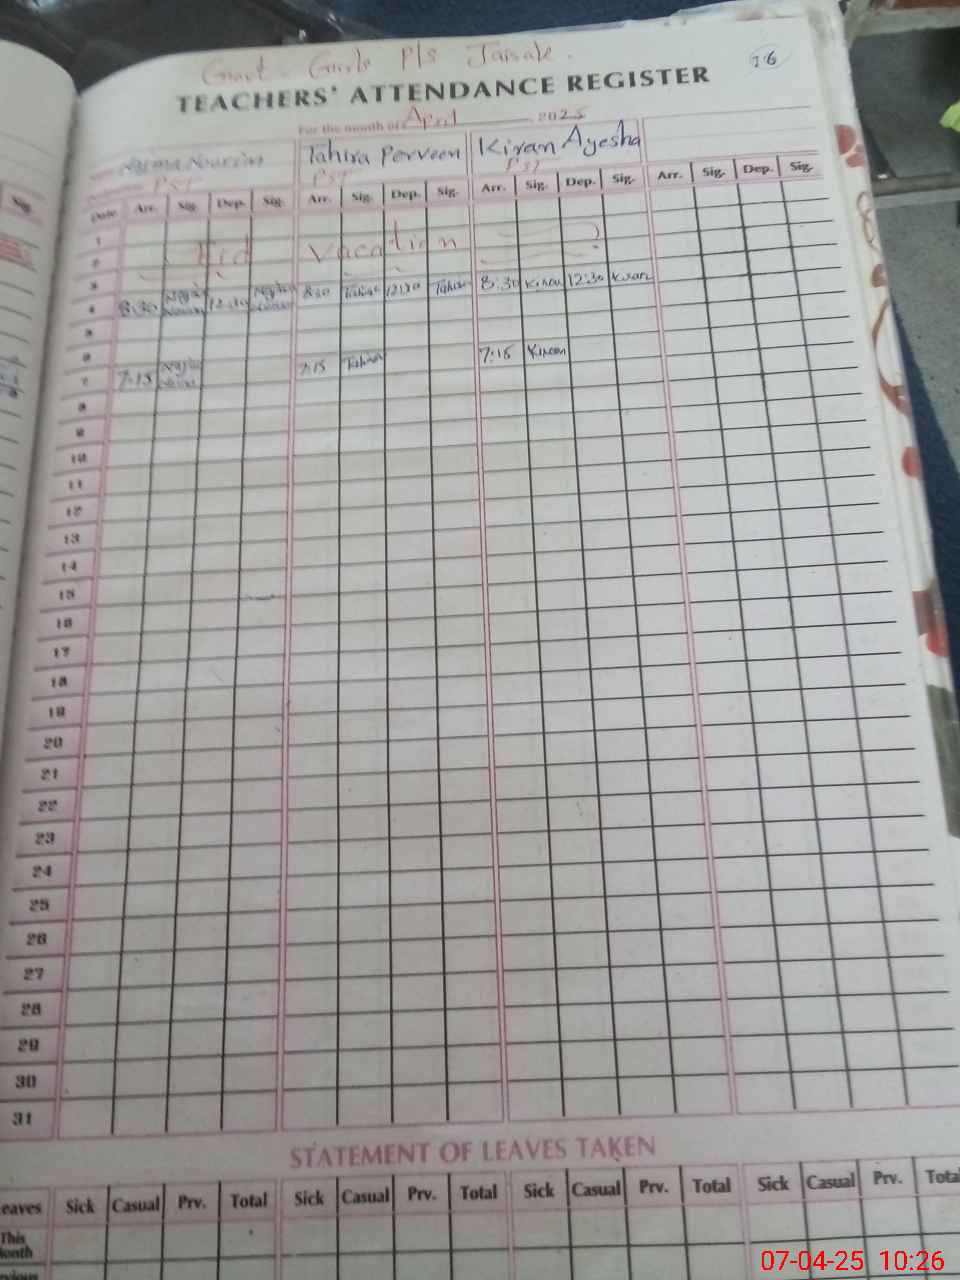 Govt. Girls P/S Jaisale.
26
TEACHERS' ATTENDANCE REGISTER
For the month of April 2025
Najma Nourin Tahira Perveen Kiran Ayesha
PST PST PST
Date Arr. Sig. Dep. Sig. Arr. Sig. Dep. Sig. Arr. Sig. Dep. Sig. Arr. Sig. Dep. Sig.
1
2 Eid Vacation
3
4 8:30 12:30 8:30 Tahira 12:30 Tahira 8:30 Kiran 12:30 Kiran
5
6
7 7:15 7:15 Tahira 7:15 Kiran
8
9
10
11
12
13
14
15
16
17
18
19
20
21
22
23
24
25
26
27
28
29
30
31
STATEMENT OF LEAVES TAKEN
eaves Sick Casual Prv. Total Sick Casual Prv. Total Sick Casual Prv. Total Sick Casual Prv. Tota
This
onth
evious
07-04-25 10:26